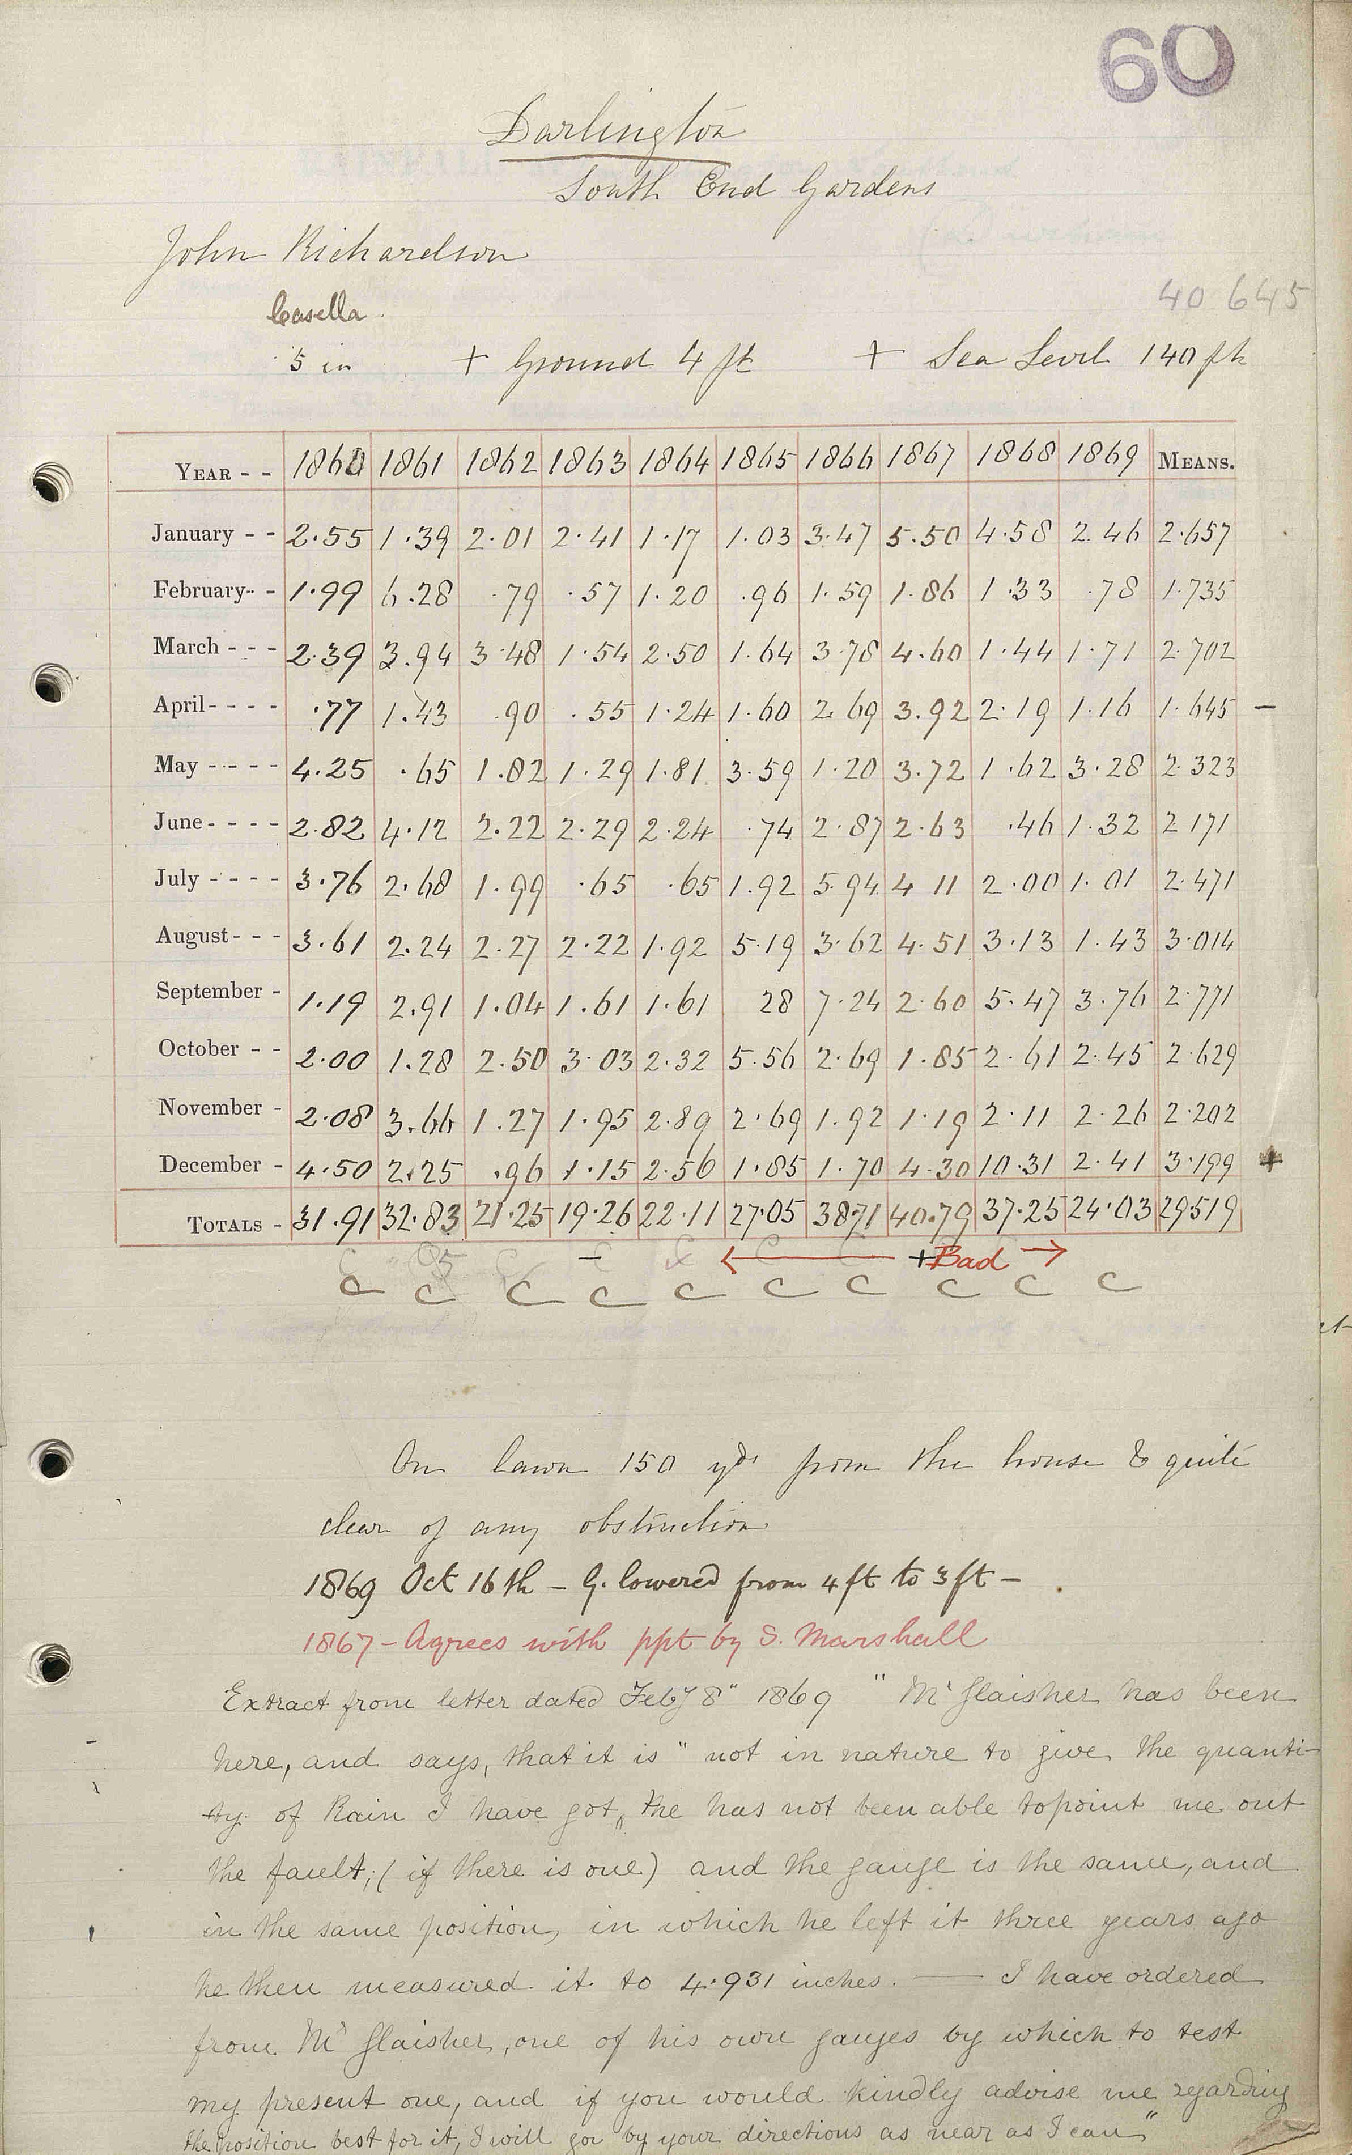 60
Darlington
South End Gardens
John Richardson
40 645
Casella.
5 in + Ground 4 ft + Sea Level 140 ft
YEAR - - 1860 1861 1862 1863 1864 1865 1866 1867 1868 1869 MEANS.
January - - 2.55 1.39 2.01 2.41 1.17 1.03 3.47 5.50 4.58 2.46 2.657
February - - 1.99 6.28 .79 .57 1.20 .96 1.59 1.86 1.33 .78 1.735
March - - - 2.39 3.94 3.48 1.54 2.50 1.64 3.78 4.60 1.44 1.71 2.702
April - - - - .77 1.43 .90 .55 1.24 1.60 2.69 3.92 2.19 1.16 1.645 -
May - - - - 4.25 .65 1.82 1.29 1.81 3.59 1.20 3.72 1.62 3.28 2.323
June - - - - 2.82 4.12 2.22 2.29 2.24 .74 2.87 2.63 .46 1.32 2.171
July - - - - 3.76 2.68 1.99 .65 .65 1.92 5.94 4.11 2.00 1.01 2.471
August - - - 3.61 2.24 2.27 2.22 1.92 5.19 3.62 4.51 3.13 1.43 3.014
September - 1.19 2.91 1.04 1.61 1.61 28 7.24 2.60 5.47 3.76 2.771
October - - 2.00 1.28 2.50 3.03 2.32 5.56 2.69 1.85 2.61 2.45 2.629
November - 2.08 3.66 1.27 1.95 2.89 2.69 1.92 1.19 2.11 2.26 2.202
December - 4.50 2.25 .96 1.15 2.56 1.85 1.70 4.30 10.31 2.41 3.199 +
TOTALS - 31.91 32.83 21.25 19.26 22.11 27.05 38.71 40.79 37.25 24.03 29519
- + Bad
C C C C C C C C C C
On lawn 150 yds from the house & quite
clear of any obstruction
1869 Oct 16th - G. lowered from 4 ft to 3 ft -
1867 - Agrees with ppt by S. Marshall
Extract from letter dated Feby 8" 1869 "Mr Glaisher has been
here, and says, that it is "not in nature to give the quanti-
ty of Rain I have got", he has not been able to point me out
the fault, (if there is one) and the gauge is the same, and
in the same position, in which he left it three years ago
he then measured it to 4.931 inches. — I have ordered
from Mr Glaisher, one of his own gauges by which to test
my present one, and if you would kindly advise me regarding
the position best for it, I will go by your directions as near as I can"